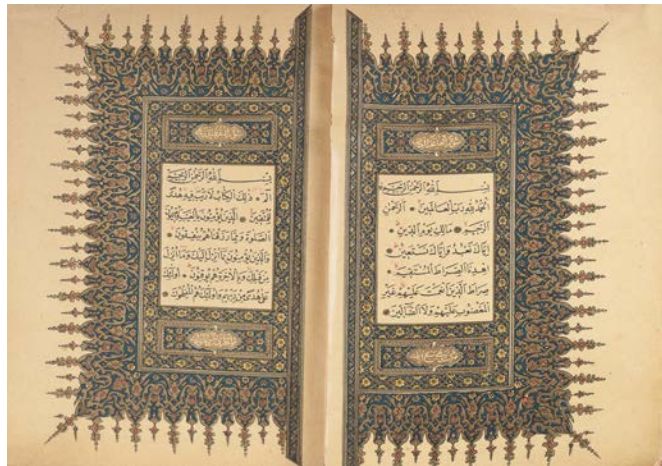 بِسْمِ اللهِ الرَّحْمٰنِ الرَّحِيمِ
اَلْحَمْدُ لِلّٰهِ رَبِّ الْعَالَمِينَ الرَّحْمٰنِ
الرَّحِيمِ مَالِكِ يَوْمِ الدِّينِ
اِيَّاكَ نَعْبُدُ وَاِيَّاكَ نَسْتَعِينُ
اِهْدِنَا الصِّرَاطَ الْمُسْتَقِيمَ
صِرَاطَ الَّذِينَ اَنْعَمْتَ عَلَيْهِمْ غَيْرِ
الْمَغْضُوبِ عَلَيْهِمْ وَلَا الضَّالِّينَ
بِسْمِ اللهِ الرَّحْمٰنِ الرَّحِيمِ
الٓمٓ ذٰلِكَ الْكِتَابُ لَا رَيْبَ فِيهِ هُدًى
لِلْمُتَّقِينَ الَّذِينَ يُؤْمِنُونَ بِالْغَيْبِ وَيُقِيمُونَ
الصَّلٰوةَ وَمِمَّا رَزَقْنَاهُمْ يُنْفِقُونَ
وَالَّذِينَ يُؤْمِنُونَ بِمَا اُنْزِلَ اِلَيْكَ وَمَا اُنْزِلَ
مِنْ قَبْلِكَ وَبِالْاٰخِرَةِ هُمْ يُوقِنُونَ اُولٰئِكَ
عَلٰى هُدًى مِنْ رَبِّهِمْ وَاُولٰئِكَ هُمُ الْمُفْلِحُونَ